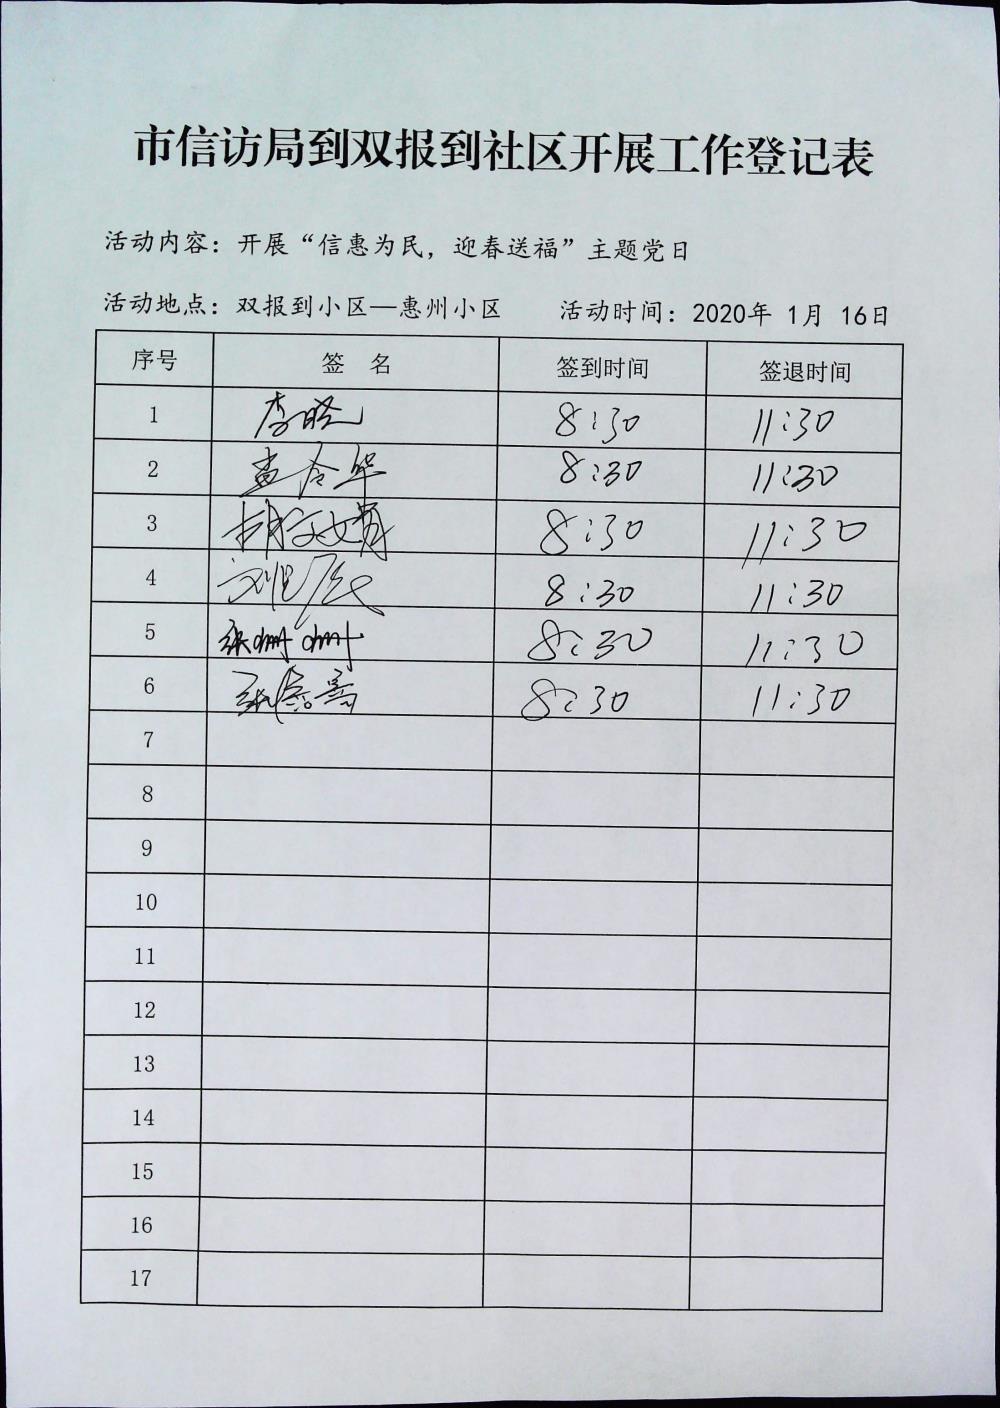 市信访局到双报到社区开展工作登记表
活动内容：开展“信惠为民，迎春送福”主题党日
活动地点：双报到小区—惠州小区 活动时间：2020年 1月 16日
序号 签 名 签到时间 签退时间
1 李晓 8:30 11:30
2 8:30 11:30
3 8:30 11:30
4 8:30 11:30
5 张珊珊 8:30 11:30
6 8:30 11:30
7
8
9
10
11
12
13
14
15
16
17